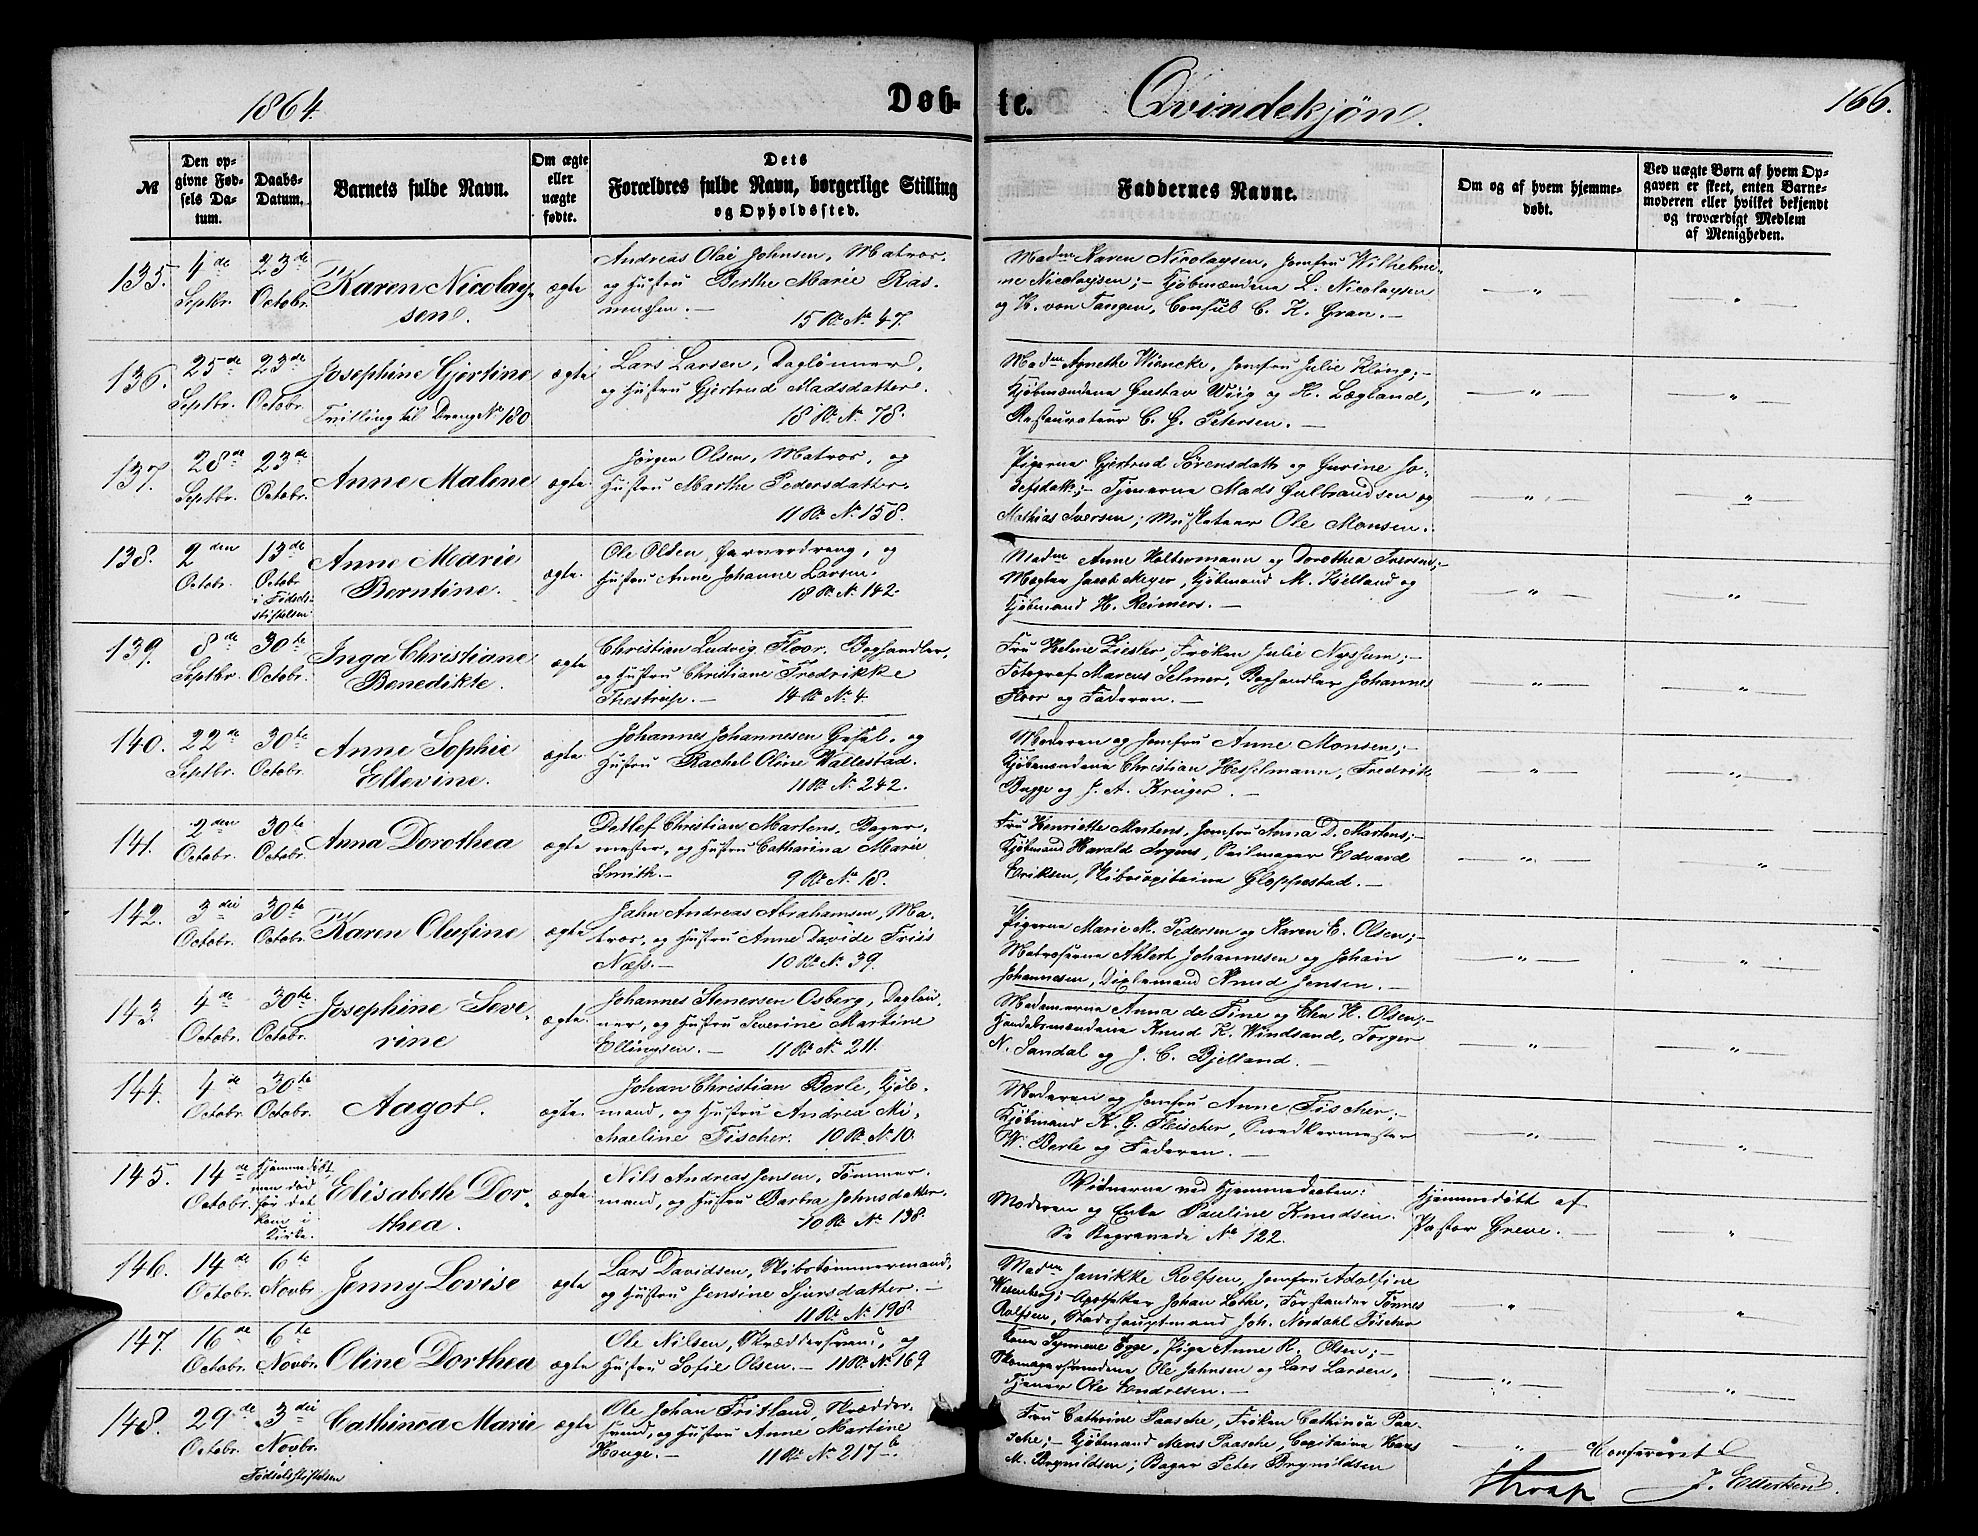 1864.
Døb-
te.
Qvindekjøn.
166.
№
Den op-
givne Fød-
sels Da-
tum.
Daabs-
Datum.
Barnets fulde Navn.
Om ægte
eller
uægte
fødte.
Dets
Forældres fulde Navn, borgerlige Stilling
og Opholdssted.
Faddernes Navne.
Om og af hvem hjemme-
døbt.
Ved uægte Børn af hvem Op-
gaven er skeet, enten Barne-
moderen eller hvilket bekjendt
og troværdigt Medlem
af Menigheden.
135.
4de
Septbr.
23de
Octobr.
Karen Nicolay-
sen.
ægte
Andreas Olai Johnsen, Matros.
og Hustru Berthe Marie Ras-
mussen. —
15 R. № 47.
Madm Karen Nicolaysen, Jomfru Wilhelmi-
ne Nicolaysen; — Kjøbmændene L. Nicolaysen
og K. von Tangen, Consul C. K. Gran. —
136.
25de
Septbr.
23de
Octobr.
Josephine Gjertine
Tvilling til Dreng № 180
ægte
Lars Larsen, Daglønner,
og Hustru Gjertrud Madsdatter.
18 R. № 78.
Madm Agnethe Wiencke, Jomfru Julie Kløng; —
Kjøbmændene Gustav Wiig og H. Lægland,
Restaurateur C. G. Petersen. —
137.
28de
Septbr.
23de
Octobr.
Anne Malene
ægte
Jørgen Olsen, Matros, og
Hustru Marthe Pedersdatter.
11 R. № 158.
Pigerne Gjertrud Sørensdatt. og Gurine Jo-
sefsdatt.; — Tjenerne Mads Gulbrandsen og
Mathias Iversen; Musketeer Ole Monsen.
138.
2den
Octobr.
13de
Octobr
i Fødsels-
stiftelsen
Anne Marie
Berntine.
ægte.
Ole Olsen, Garverdreng, og
Hustru Anne Johanne Larsen.
18 R. № 142.
Madm Anne Haltermann og Dorothea Iversen; —
Mægler Jacob Meyer, Kjøbmand M. Hjelland og
Kjøbmand H. Reimers. —
139.
8de
Septbr.
30te
Octobr.
Inga Christiane
Benedikte.
ægte
Christian Ludvig Floor, Boghandler,
og Hustru Christiane Fredrikke
Thestrup. — 14 R. № 4.
Fru Helene Ziesler, Frøken Julie Nyssum; —
Fotograf Marcus Selmer, Boghandler Johannes
Floor og Faderen. —
140.
22de
Septbr.
30te
Octobr.
Anne Sophie
Ellevine.
ægte.
Johannes Johannesen Gesel, og
Hustru Rachel Oline Vallestad.
11 R. № 242.
Moderen og Jomfru Anne Monsen; —
Kjøbmændene Christian Hesselmann, Fredrik
Bugge og J. A. Krüger. —
141.
2den
Octobr.
30te
Octobr.
Anna Dorothea
ægte
Detlef Christian Martens, Bager-
mester, og Hustru Catharina Marie
Smith. —
9 R. № 18.
Fru Henriette Martens, Jomfru Anna D. Martens; —
Kjøbmand Harald Irgens, Seilmager Edvard
Eriksen, Skibscapitaine Gloppestad. —
142.
3die
Octobr.
30te
Octobr.
Karen Olufine
ægte
John Andreas Abrahamsen, Ma-
tros, og Hustru Anne Davide Friis
Næss. —
10 R. № 39.
Pigerne Marie M. Pedersen og Karen E. Olsen; —
Matroserne Ahlert Johannesen og Johan
Johannesen, Diplemand Knud Jensen. —
143.
4de
Octobr.
30te
Octobr.
Josephine Seve-
rine
ægte.
Johannes Stenersen Osberg, Dagløn-
ner, og Hustru Severine Martine
Ellingsen. —
11 R. № 211.
Madamerne Anna de Fine og Elen H. Olsen; —
Handelsmændene Knud K. Windsand, Torger
N. Sandal og J. C. Bjelland. —
144.
4de
Octobr.
30te
Octobr.
Aagot.
ægte.
Johan Christian Berle, Kjøb-
mand, og Hustru Andrea Mi-
chaeline Fischer.
10 R. № 10.
Moderen og Jomfru Anne Fischer; —
Kjøbmand K. G. Fleischer, Snedkermester
W. Berle og Faderen. —
145.
14de
Octobr.
Hjemmedøbt,
men død
før det
kom i
Kirke.
Elisabeth Dor-
thea.
ægte
Nils Andreas Jensen, Tømmer-
mand, og Hustru Barbra Johnsdatter.
10 R. № 138.
Vidnerne ved Hjemmedaaben:
Moderen og Enke Pauline Knudsen.
Se Begravede № 122.
Hjemmedøbt af
Pastor Greve. —
146.
14de
Octobr.
6te
Novbr.
Jenny Lovise
ægte
Lars Davidsen, Skibstømmermand,
og Hustru Jensine Sjursdatter. —
11 R. № 198.
Madm Janikke Rolfsen, Jomfru Adolfine
Wesenberg; — Apotheker Johan Lothe, Forstander Tønnes
Rolfsen, Stadshauptmand Joh. Nordahl Fischer
147.
16de
Octobr.
6te
Novbr.
Oline Dorthea
ægte
Ole Nilsen, Skræddersvend, og
Hustru Sofie Olsen. — 11 R. № 169
Kone Synneve Egge, Pige Anne R. Olsen; —
Skomagersvendene Ole Johnsen og Lars Larsen,
Tjener Ole Endresen. —
148.
29de
Octobr.
3die
Novbr.
Fødselsstiftelsen
Cathinca Marie
ægte
Ole Johan Fritland, Skrædder-
svend, og Hustru Anne Martine
Hauge. —
11 R. № 217 b
Fru Cathrine Paasche, Frøken Cathinca Paa-
sche; — Kjøbmand Mens Paasche, Capitaine Hans
M. Brynildsen; Bager Peter Brynildsen
Konfereret
J. Ellertsen.